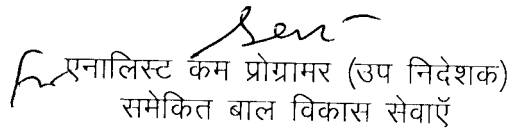 एनालिस्ट कम प्रोग्रामर (उप निदेशक)
समेकित बाल विकास सेवाऍ